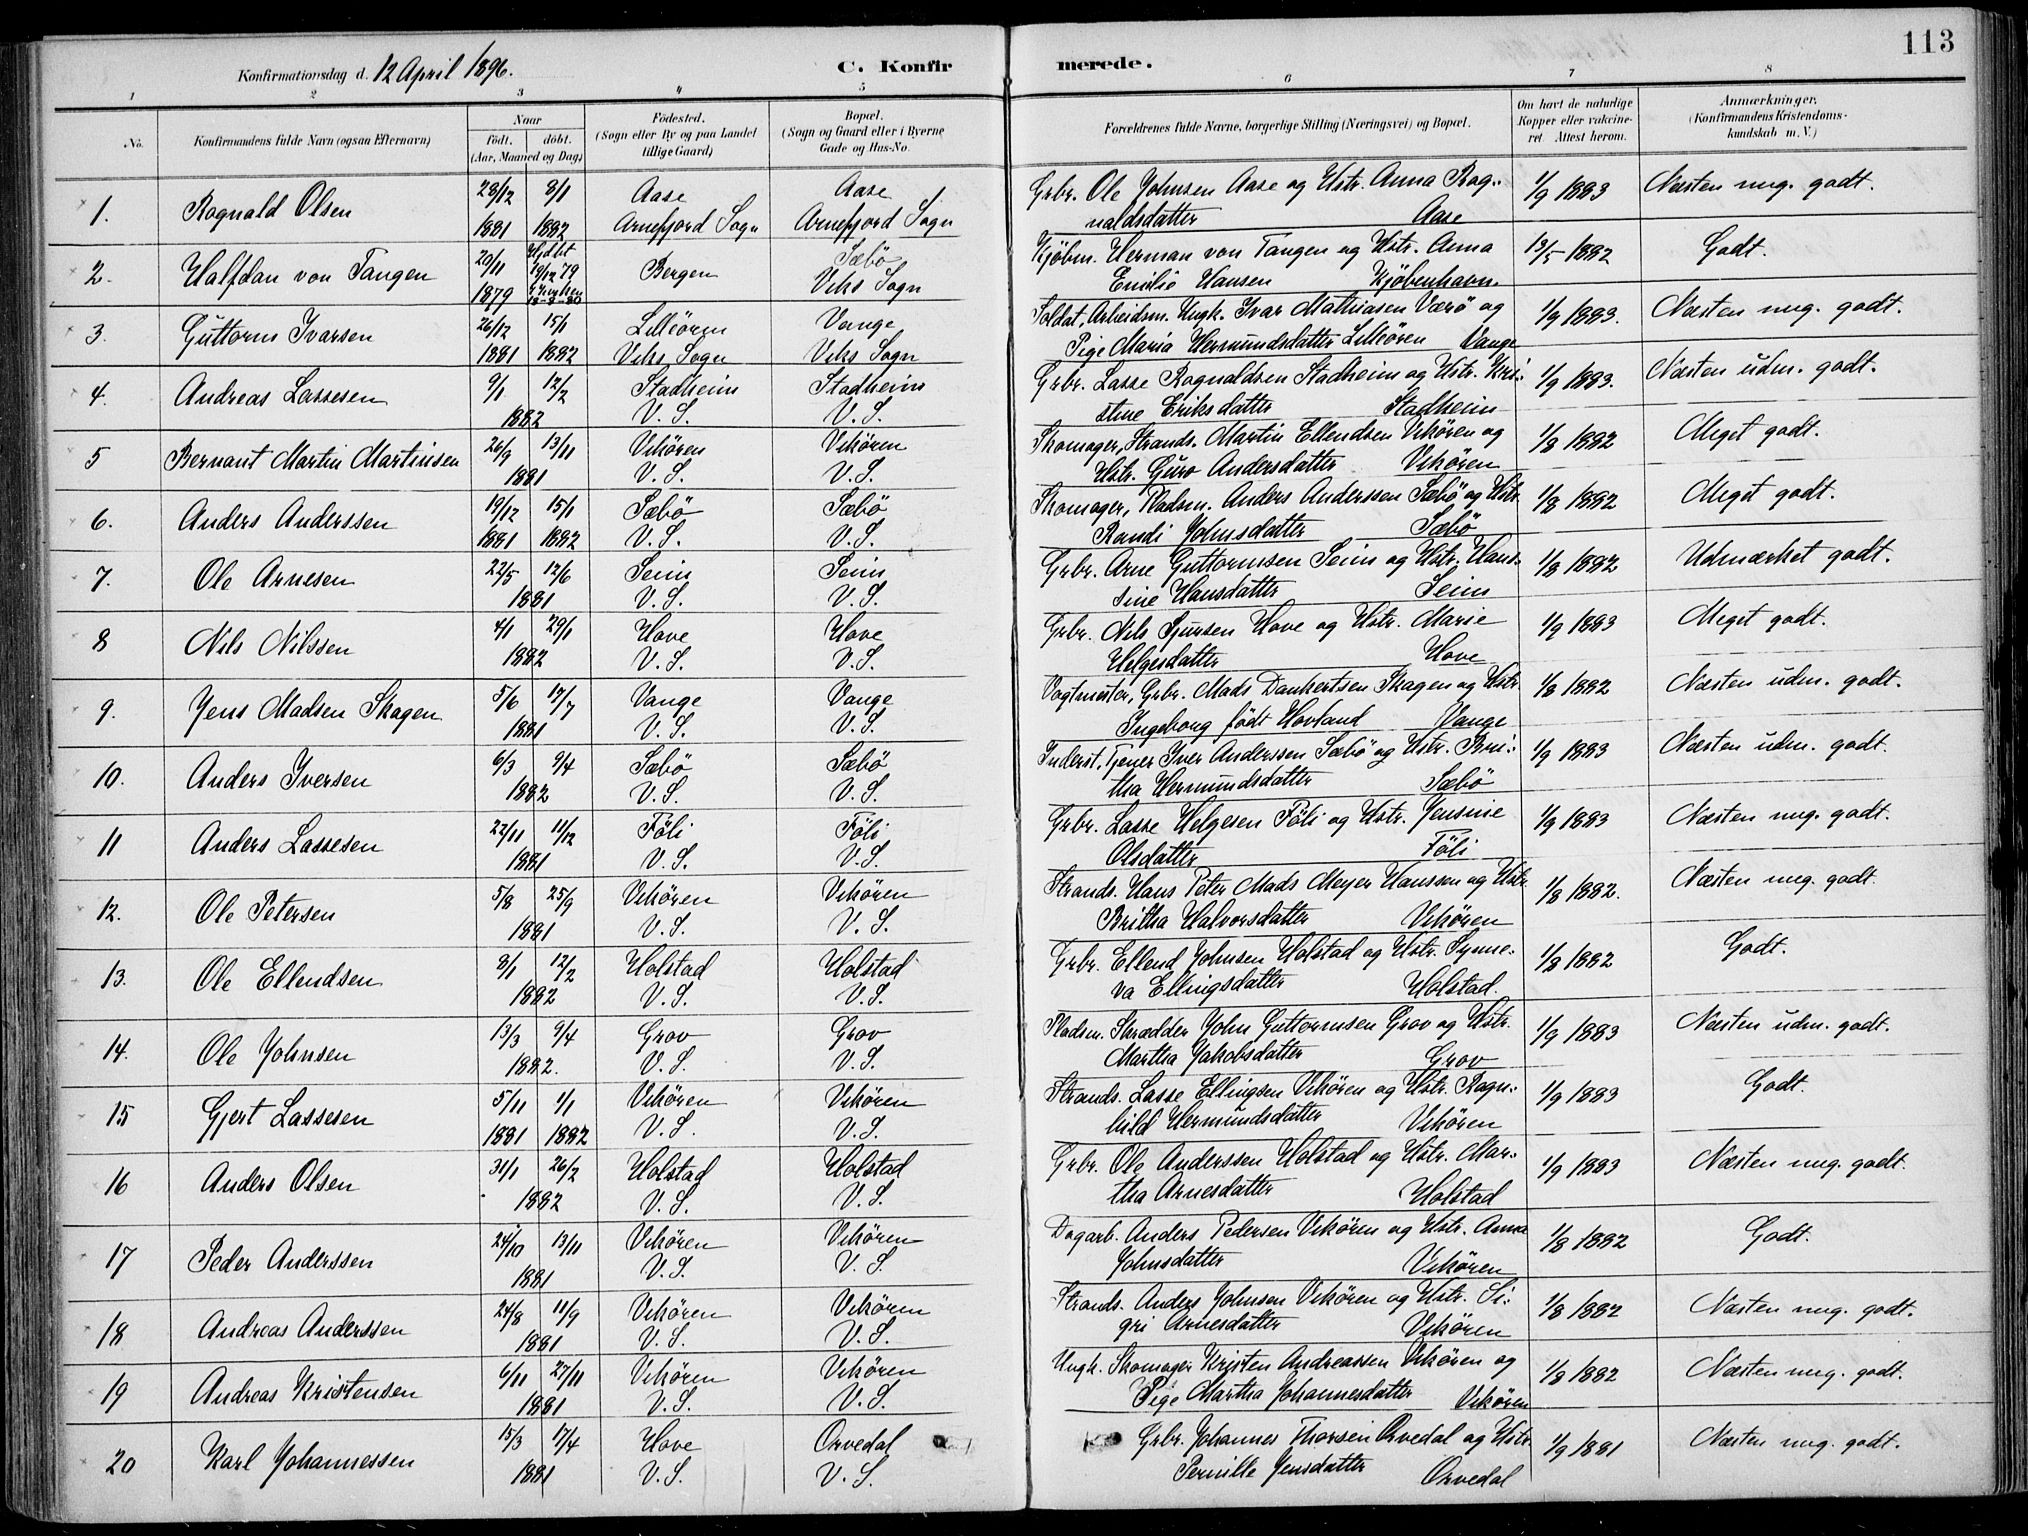 113
Konfirmationsdag d. 12 April 1896. C. Konfirmerede.
1 2 3 4 5 6 7 8
No. Konfirmandens fulde Navn (ogsaa Efternavn) Naar født. døbt. (Aar, Maaned og Dag) Fødested. (Sogn eller By og paa Landet tillige Gaard) Bopæl. (Sogn og Gaard eller i Byerne Gade og Hus-No. Forældrenes fulde Navne, borgerlige Stilling (Næringsvei) og Bopæl. Om havt de naturlige Kopper eller vaccineret. Attest herom. Anmærkninger. (Konfirmandens Kristendomskundskab m. V.)
1. Ragnald Olsen 28/12 1881 8/1 1882 Aase Arnefjord Sogn Aase Arnefjord Sogn Grbr. Ole Johnsen Aase og Hstr. Anna Rag- 1/9 1883 Næsten mg. godt.
naldsdatter Aase
2. Halfdan von Tangen 20/11 1879 Hjdbt 19/12 79 Bergen Sæbö Viks Sogn Kjöbm. Herman von Tangen og Hstr. Anna 13/5 1882 Godt.
Emilie Hansen Kjöbenhavn.
3. Guttorm Ivarsen 26/12 1881 15/1 1882 Lilleören Viks Sogn Vange Viks Sogn Soldat, Arbeidsm. Ungk. Ivar Mathiasen Værö og 1/9 1883. Næsten mg. godt.
Pige Maria Hermundsdatter Lilleören Vange
4. Andreas Lassesen 9/1 12/2 1882 Stadheim V. S. Stadheim V. S. Grbr. Lasse Ragnaldsen Stadheim og Hstr. Kri- 1/9 1883. Næsten udm. godt.
stine Eriksdatter Stadheim
5 Bernant Martin Martinsen 26/9 13/11 1881 Vikören V. S. Vikören V. S. Skomager, Strands. Martin Ellendsen Vikören og 1/8 1882 Meget godt.
Hstr. Guro Andersdatter Vikören
6. Anders Anderssen 19/12 1881 15/1 1882 Sæbö V. S. Sæbö V. S. Skomager, Pladsm. Anders Anderssen Sæbö og Hstr. 1/8 1882 Meget godt.
Randi Johnsdatter Sæbö
7. Ole Arnesen 22/5 12/6 1881 Seim V. S. Seim V. S. Grbr. Arne Guttormsen Seim og Hstr. Hans- 1/8 1882 Udmærket godt.
sine Hansdatter Seim
8 Nils Nilssen 4/1 29/1 1882 Hove V. S. Hove V. S. Grbr. Nils Sjursen Hove og Hstr. Marie 1/9 1883 Meget godt.
Helgesdatter Hove
9. Jens Madsen Skagen 5/6 17/7 1881 Vange V. S. Vange V. S. Vagtmester, Grbr. Mads Dankertsen Skagen og Hstr. 1/8 1882 Næsten udm. godt.
Ingeborg født Hovland Vange
10. Anders Iversen 6/3 9/4 1882 Sæbö V. S. Sæbö V. S. Inderst, Tjener Iver Anderssen Sæbö og Hstr. Bri- 1/9 1883 Næsten udm. godt.
tha Hermundsdatter Sæbö
11 Anders Lassesen 22/11 11/12 1881 Föli V. S. Föli V. S. Grbr. Lasse Helgesen Föli og Hstr. Jensine 1/9 1883 Næsten mg. godt.
Olsdatter Föli
12. Ole Petersen 5/8 25/9 1881 Vikören V. S. Vikören V. S. Strands. Hans Peter Mads Meyer Hanssen og Hstr. 1/8 1882. Næsten mg. godt.
Britha Halvorsdatter Vikören
13. Ole Ellendsen 8/1 12/2 1882 Holstad V. S. Holstad V. S. Grbr. Ellend Johnsen Holstad og Hstr. Synne- 1/8 1882 Godt.
va Ellingsdatter Holstad.
14. Ole Johnsen 13/3 9/4 1882. Grov V. S. Grov V. S. Pladsm. Skrædder John Guttormsen Grov og Hstr. 1/9 1883 Næsten udm. godt.
Martha Jakobsdatter Grov
15 Gjert Lassesen 5/11 1881 1/1 1882 Vikören V. S. Vikören V. S. Strands. Lasse Ellingsen Vikören og Hstr. Ragn- 1/9 1883 Godt.
hild Hermundsdatter Vikören
16 Anders Olsen 31/1 26/2 1882 Holstad V. S. Holstad V. S. Grbr. Ole Anderssen Holstad og Hstr. Mar- 1/9 1883 Næsten mg. godt.
tha Arnesdatter Holstad
17 Peder Anderssen 24/10 13/11 1881 Vikören V. S. Vikören V. S. Dagarb. Anders Pedersen Vikören og Hstr. Anna 1/8 1882 Godt.
Johnsdatter Vikören
18 Andreas Anderssen 24/8 11/9 1881 Vikören V. S. Vikören V. S. Strands. Anders Johnsen Vikören og Hstr. Si- 1/8 1882 Næsten mg. godt.
gri Arnesdatter Vikören
19 Andreas Kristensen 6/11 27/11 1881 Vikören V. S. Vikören V. S. Ungk. Skomager Kristen Andreassen Vikören og 1/8 1882 Næsten mg. godt.
Pige Martha Johannesdatter Vikören
20 Karl Johannessen 15/3 17/4 1881 Hove V. S. Orvedal V. S. Grbr. Johannes Thorsen Orvedal og Hstr. 1/9 1881 Næsten mg. godt.
Pernille Jensdatter Orvedal